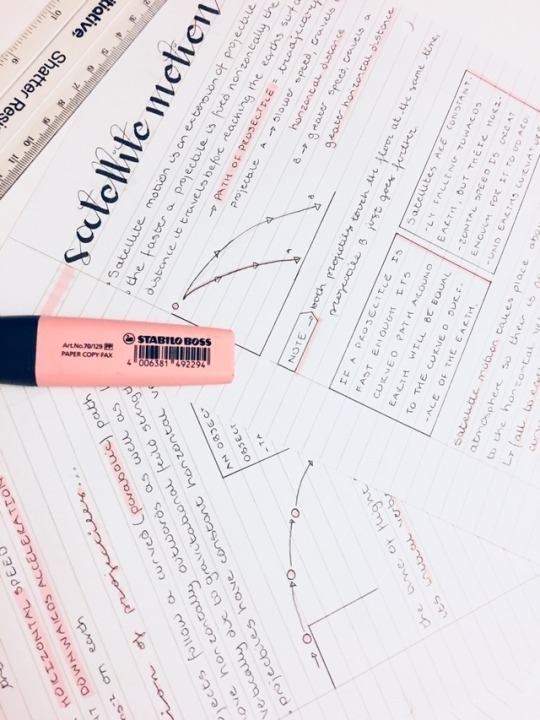 itiative,
Shatter Resis
satellite motion
Satellite motion is an extension of projectile
the faster a projectile is fired horizontally the
distance it travels before reaching the earths surf
→ PATH OF PROJECTILE = trajectory
projectile A → slower speed, travels
horizontal distance
B → greater speed, travels a
greater horizontal distance
B
A
NOTE → both projectiles reach the floor at the same time,
projectile B just goes further.
IF A PROJECTILE IS
FAST ENOUGH ITS
CURVED PATH AROUND
EARTH WILL BE EQUAL
TO THE CURVED SURF-
-ACE OF THE EARTH.
Satellites ARE CONSTANT
-LY FALLING TOWARDS
EARTH, BUT THEIR HORI-
-ZONTAL SPEED IS GREAT
ENOUGH FOR IT TO GO ARO-
-UND EARTHS CURVATURE
Satellite motion takes place abo
atmosphere so there is
to the horizontal
STABILO BOSS
Art.No.70/129
PAPER COPY FAX
4 006381 492294
AN OBJECT
OBJECT
jects follow a curved (parabolic) path
ove horizontally outwards as well as
vertically due to gravitational field strength
projectiles have constant horizontal ve
ion of projectiles...
on earth
DOWNWARDS ACCELERATION
HORIZONTAL SPEED
the time of flight
its